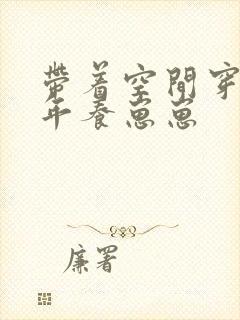 带着空間穿
年養崽崽
廉署